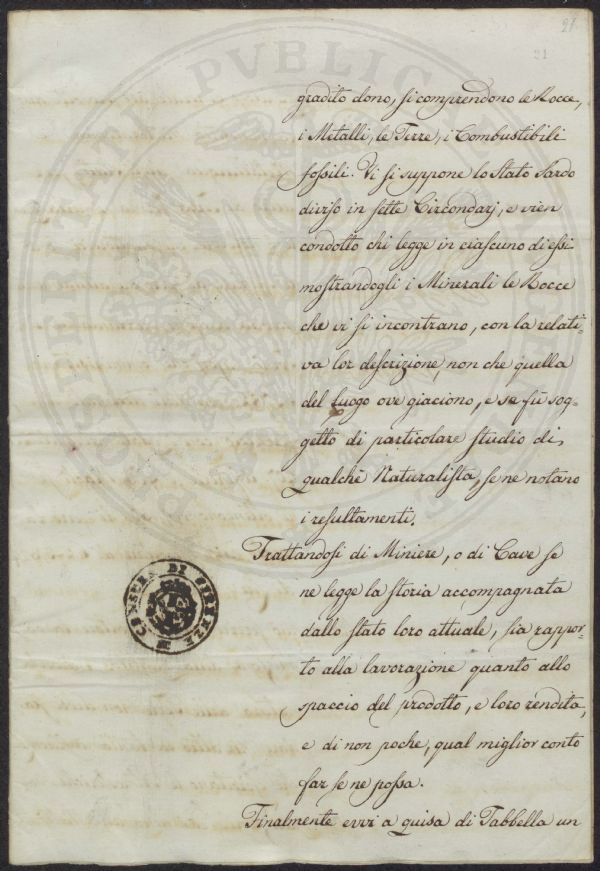 21
21
gradito dono, si comprendono le Rocce,
i Metalli, le Terre, i Combustibili
fossili. Vi si suppone lo Stato Sardo
diviso in sette Circondarj, e vien
condotto chi legge in ciascuno di essi
mostrandogli i Minerali le Rocce
che vi si incontrano, con la relati-
va lor descrizione, non che quella
del luogo ove giaciono, e se fù sog-
getto di particolare studio di
qualchè Naturalista, se ne notano
i resultamenti.
Trattandosi di Miniere, o di Cave se
ne legge la storia accompagnata
dallo stato loro attuale, sia rappor-
to alla lavorazione quanto allo
spaccio del prodotto, e loro rendita,
e di non poche, qual miglior conto
far se ne possa.
Finalmente evvi a guisa di Tabbella un
CENSURA DI FIRENZE
PROSPERITATI PUBLICAE